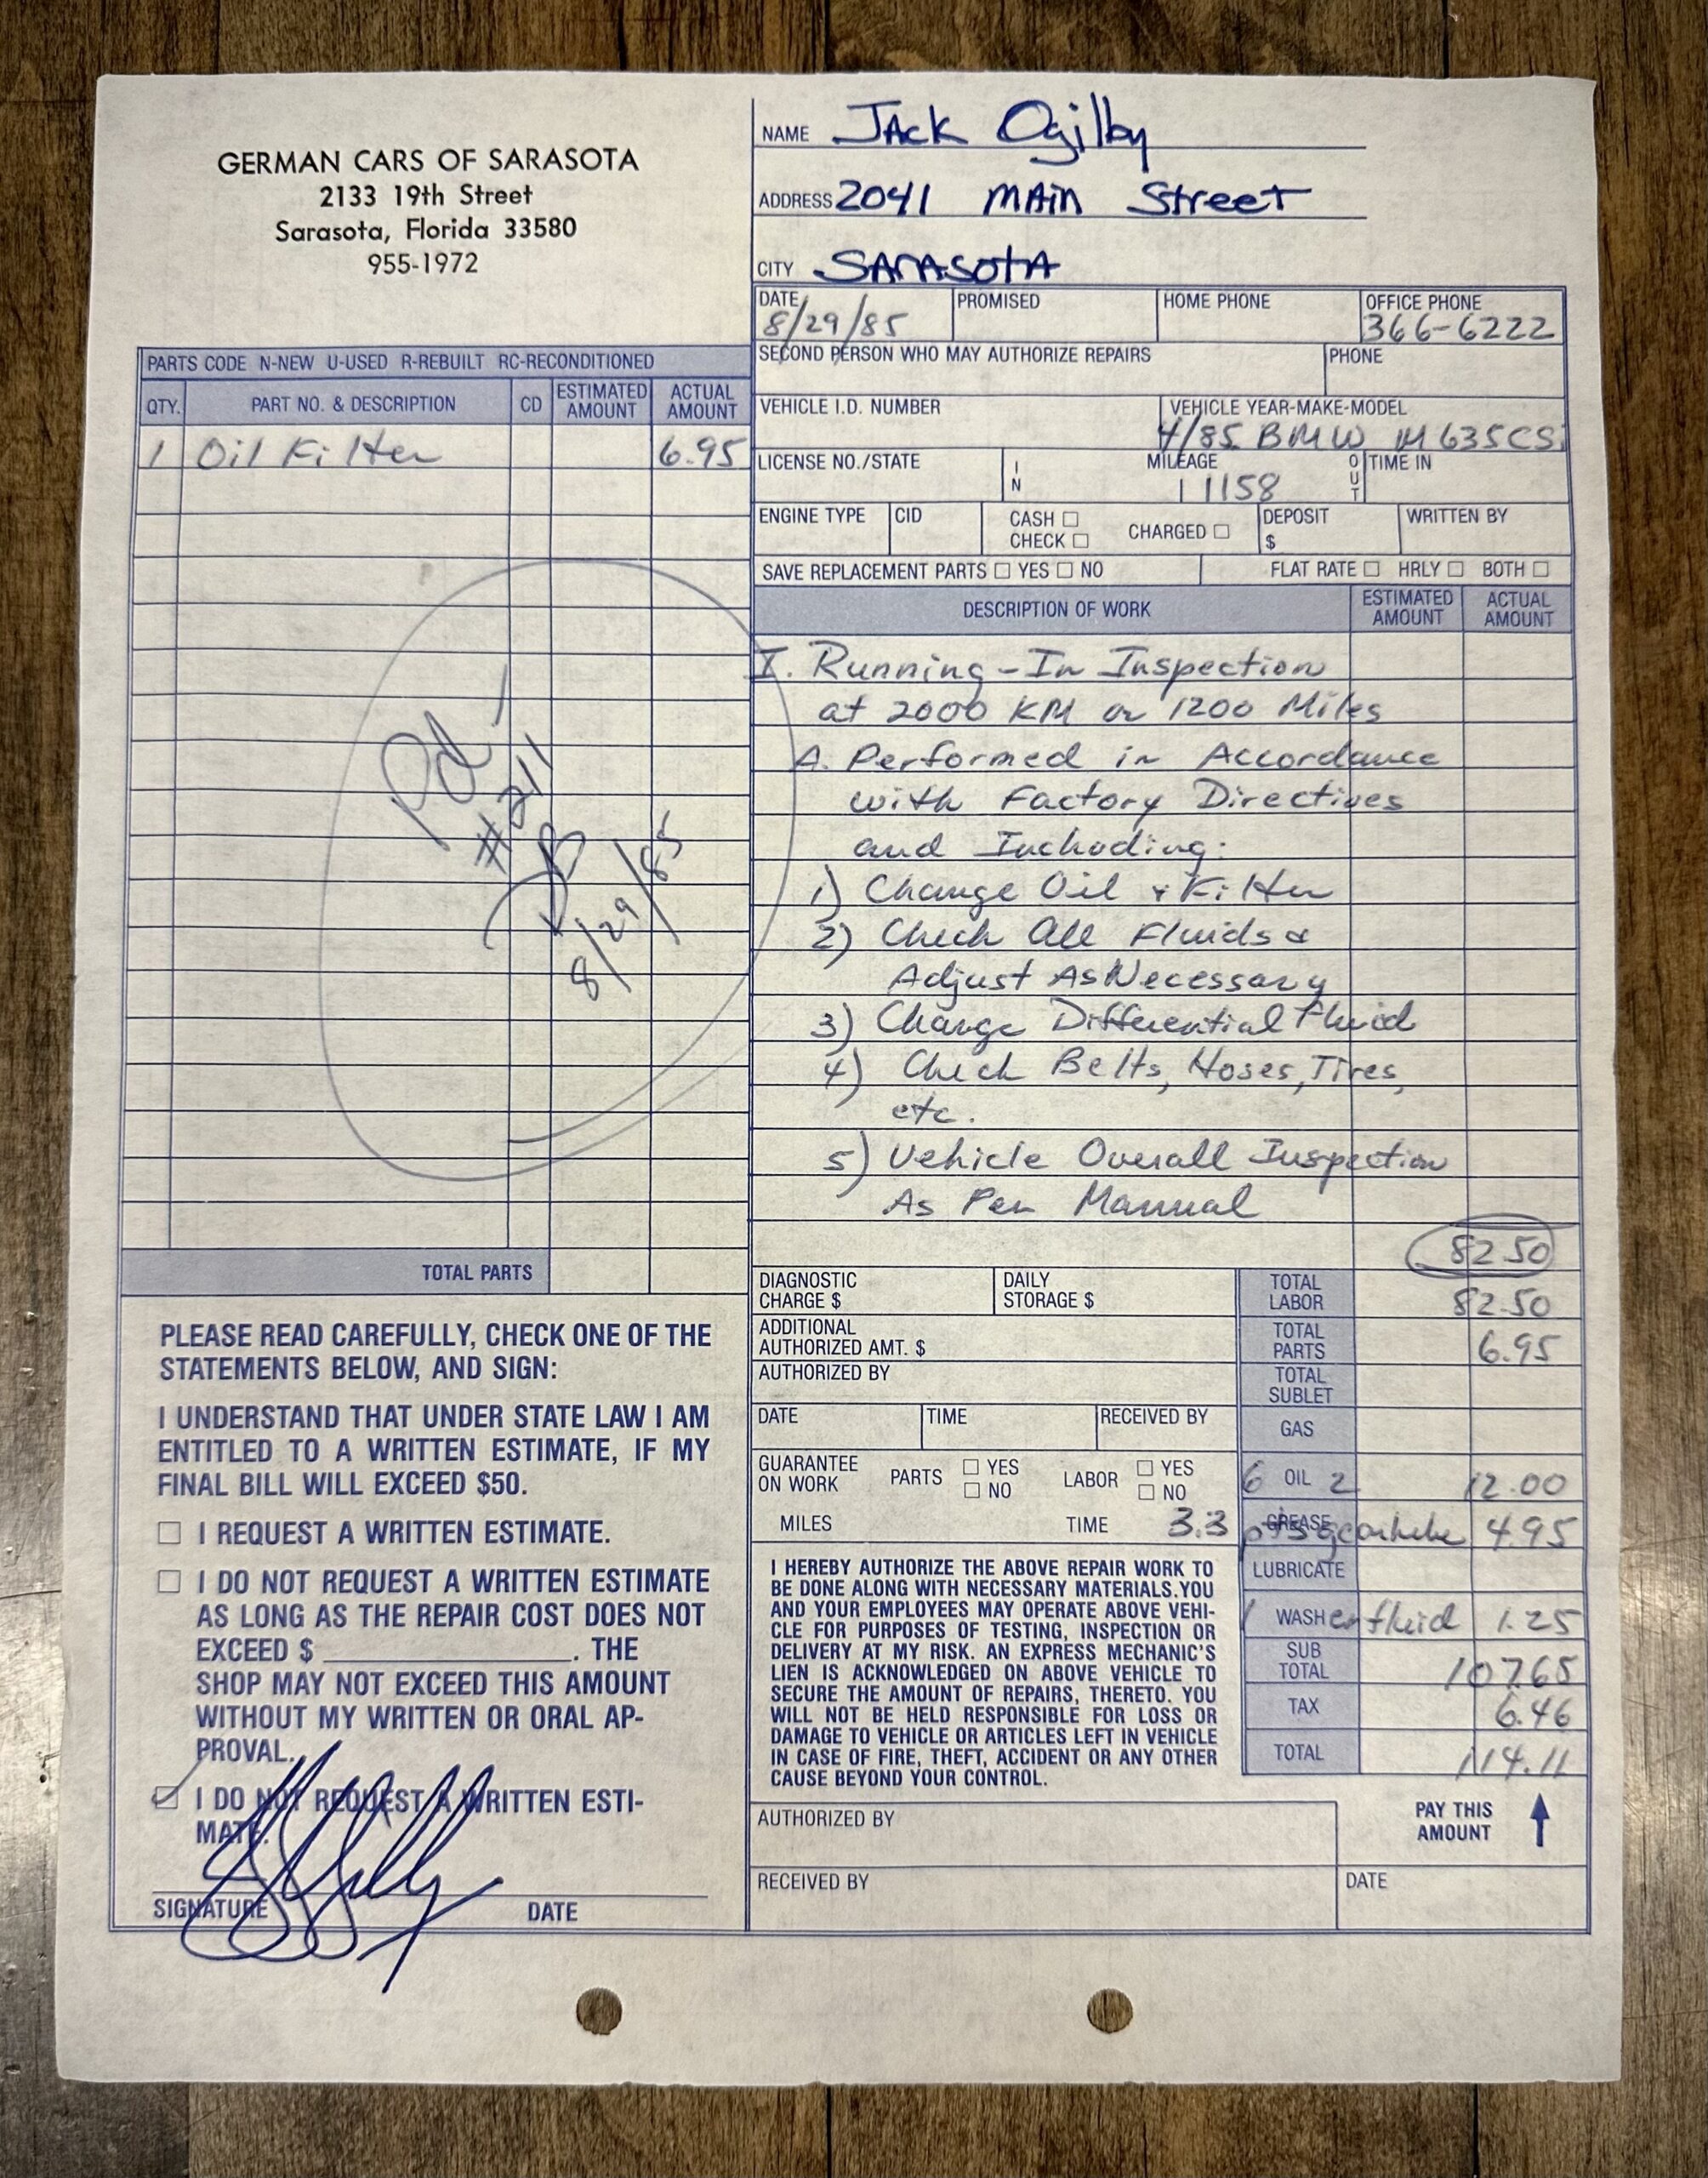 GERMAN CARS OF SARASOTA
2133 19th Street
Sarasota, Florida 33580
955-1972
NAME Jack Ogilby
ADDRESS 2041 Main Street
CITY Sarasota
DATE 8/29/85 PROMISED HOME PHONE OFFICE PHONE 366-6222
SECOND PERSON WHO MAY AUTHORIZE REPAIRS PHONE
VEHICLE I.D. NUMBER VEHICLE YEAR-MAKE-MODEL 4/85 BMW M635CSi
LICENSE NO./STATE IN MILEAGE 11158 OUT TIME IN
ENGINE TYPE CID CASH ☐ CHECK ☐ CHARGED ☐ DEPOSIT $ WRITTEN BY
SAVE REPLACEMENT PARTS ☐ YES ☐ NO FLAT RATE ☐ HRLY ☐ BOTH ☐
PARTS CODE N-NEW U-USED R-REBUILT RC-RECONDITIONED
QTY. PART NO. & DESCRIPTION CD ESTIMATED AMOUNT ACTUAL AMOUNT
1 Oil Filter 6.95
Pd
#211
8/29/85
TOTAL PARTS
DESCRIPTION OF WORK ESTIMATED AMOUNT ACTUAL AMOUNT
I. Running-In Inspection
at 2000 KM or 1200 Miles
A. Performed in Accordance
with Factory Directives
and Including:
1) Change Oil + Filter
2) Check All Fluids &
Adjust As Necessary
3) Change Differential Fluid
4) Check Belts, Hoses, Tires,
etc.
5) Vehicle Overall Inspection
As Per Manual
82.50
DIAGNOSTIC CHARGE $ DAILY STORAGE $ TOTAL LABOR 82.50
ADDITIONAL AUTHORIZED AMT. $ TOTAL PARTS 6.95
AUTHORIZED BY TOTAL SUBLET
DATE TIME RECEIVED BY GAS
GUARANTEE ON WORK PARTS ☐ YES ☐ NO LABOR ☐ YES ☐ NO 6 OIL 2 12.00
MILES TIME 3.3 pts GREASE gearlube 4.95
LUBRICATE
1 WASHer fluid 1.25
SUB TOTAL 107.65
TAX 6.46
TOTAL 114.11
PAY THIS AMOUNT
I HEREBY AUTHORIZE THE ABOVE REPAIR WORK TO
BE DONE ALONG WITH NECESSARY MATERIALS. YOU
AND YOUR EMPLOYEES MAY OPERATE ABOVE VEHI-
CLE FOR PURPOSES OF TESTING, INSPECTION OR
DELIVERY AT MY RISK. AN EXPRESS MECHANIC'S
LIEN IS ACKNOWLEDGED ON ABOVE VEHICLE TO
SECURE THE AMOUNT OF REPAIRS, THERETO. YOU
WILL NOT BE HELD RESPONSIBLE FOR LOSS OR
DAMAGE TO VEHICLE OR ARTICLES LEFT IN VEHICLE
IN CASE OF FIRE, THEFT, ACCIDENT OR ANY OTHER
CAUSE BEYOND YOUR CONTROL.
AUTHORIZED BY
RECEIVED BY DATE
PLEASE READ CAREFULLY, CHECK ONE OF THE
STATEMENTS BELOW, AND SIGN:
I UNDERSTAND THAT UNDER STATE LAW I AM
ENTITLED TO A WRITTEN ESTIMATE, IF MY
FINAL BILL WILL EXCEED $50.
☐ I REQUEST A WRITTEN ESTIMATE.
☐ I DO NOT REQUEST A WRITTEN ESTIMATE
AS LONG AS THE REPAIR COST DOES NOT
EXCEED $ ____________. THE
SHOP MAY NOT EXCEED THIS AMOUNT
WITHOUT MY WRITTEN OR ORAL AP-
PROVAL.
☑ I DO NOT REQUEST A WRITTEN ESTI-
MATE.
SIGNATURE DATE